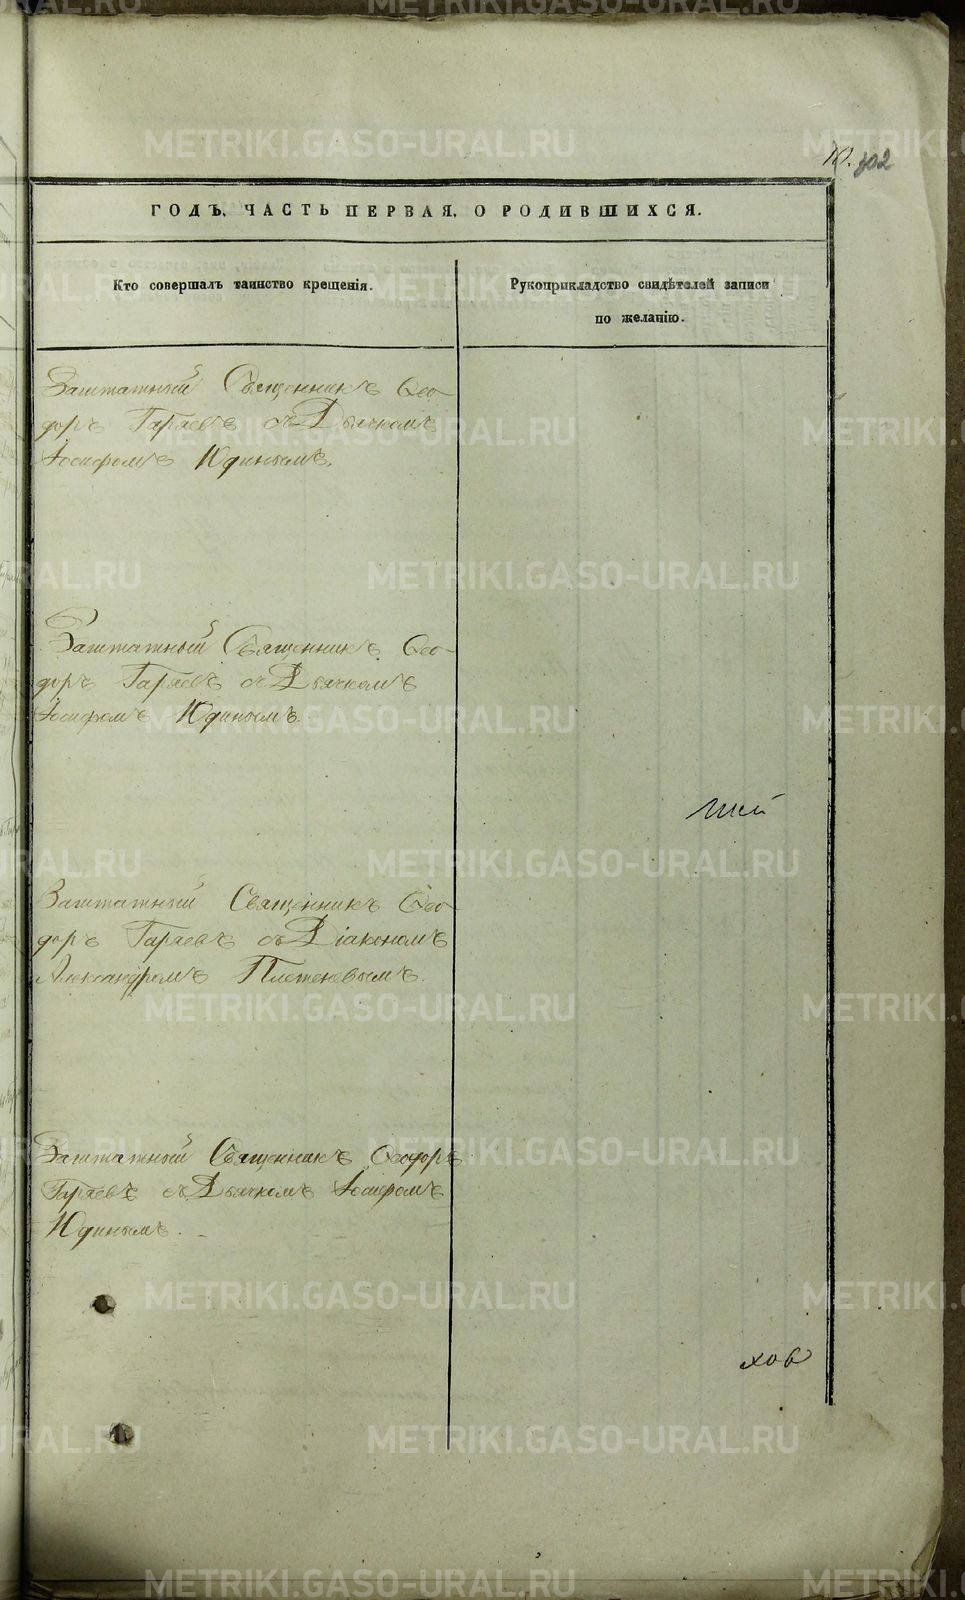 10. 302
ГОДЪ, ЧАСТЬ ПЕРВАЯ, О РОДИВШИХСЯ.
Кто совершалъ таинство крещенія.
Рукоприкладство свидѣтелей записи
по желанію.
Заштатный Священникъ Ѳео-
доръ Гаряевъ съ Дьячкомъ
Іосифомъ Юдинымъ.
Заштатный Священникъ Ѳео-
доръ Гаряевъ съ Дьячкомъ
Іосифомъ Юдинымъ.
Заштатный Священникъ Ѳео-
доръ Гаряевъ съ Діакономъ
Александромъ Плетеневымъ.
Заштатный Священникъ Ѳеодоръ
Гаряевъ съ Дьячкомъ Іосифомъ
Юдинымъ.
хов
METRIKI.GASO-URAL.RU